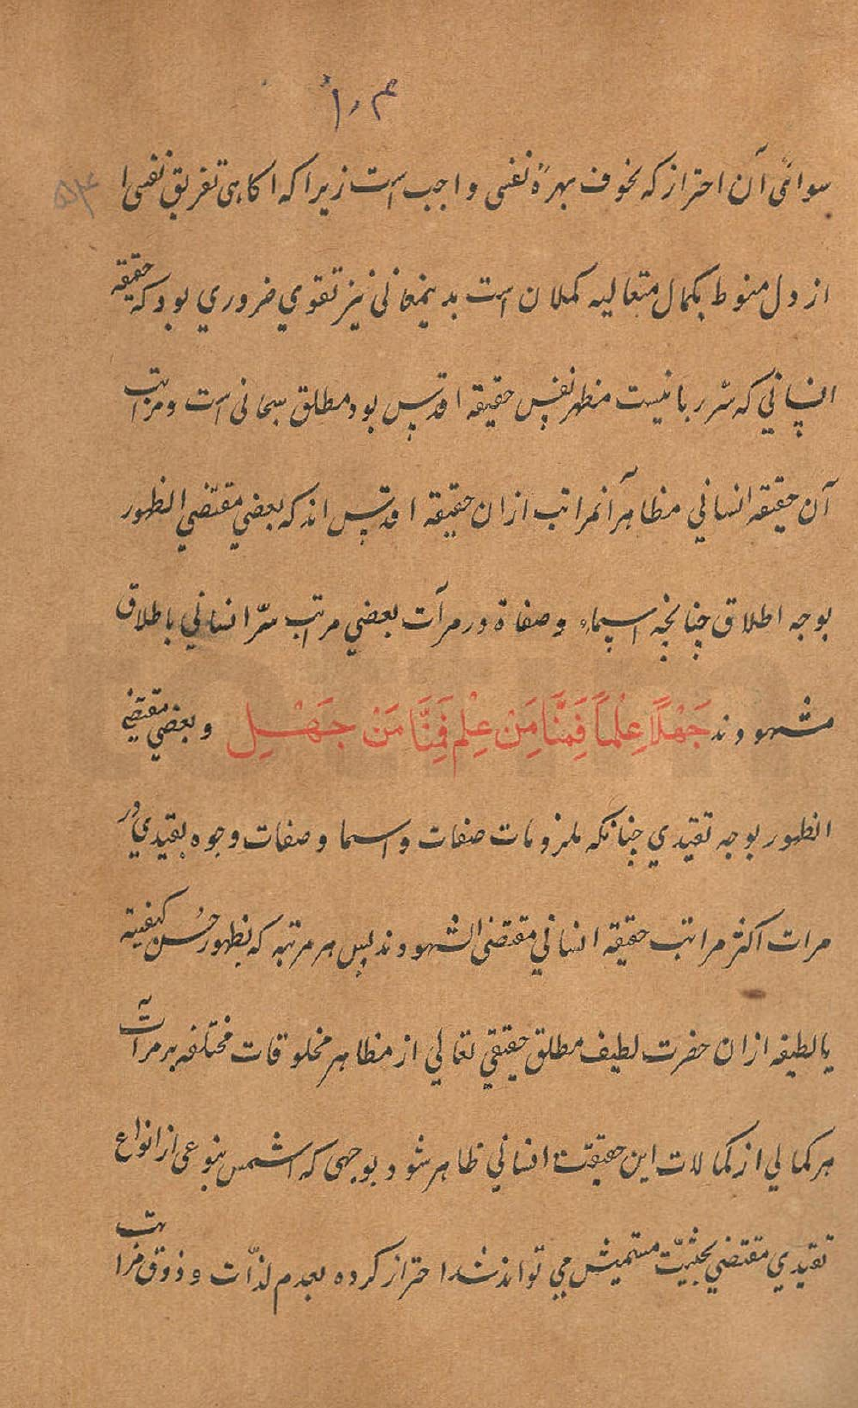 سوائی آن احتراز که بخوف بهرهٔ نفسی واجب است زیرا که اکاهی تفریق نفسی ا
از دل منوط بکمال متعالیه کملان است بدینمعانی نیز تقوي ضروري بود که حقیقه
انسانی که سّر ربانیست مظهر نفس حقیقه اقدس بود مطلق سبحانی است و مراتب
آن حقیقه انسانی مظاهر آنمراتب ازان حقیقه اقدس اند که بعضي مقتضي الظهور
بوجه اطلاق چنانچه اسماء و صفاة در مرآت بعضي مراتب سّر انسانی باطلاق
مشهودند جَهْلًا عِلْماً فَمَنَّا مَن عِلْم فَمِنَّا مَنْ جَهْلِ و بعضي مقتضي
الظهور بوجه تقیدي چنانکه ملزومات صفات و اسما و صفات وجوه بقیدي در
مرات اکثر مراتب حقیقه انسانی مقتضی الشهودند پس هر مرتبه که بظهور حُسن کیفیته
یا لطیفه ازان حضرت لطیف مطلق حقیقی تعالي از مظاهر مخلوقات مختلفه بر مرآت
هر کمالي از کمالات این حقیقت انسانی ظاهر شود بوجهی که اشمس بنوعی از انواع
تقیدي مقتضي بحثیت مي تواند شد احتراز کرده بعدم لذّات و ذوق مراتب